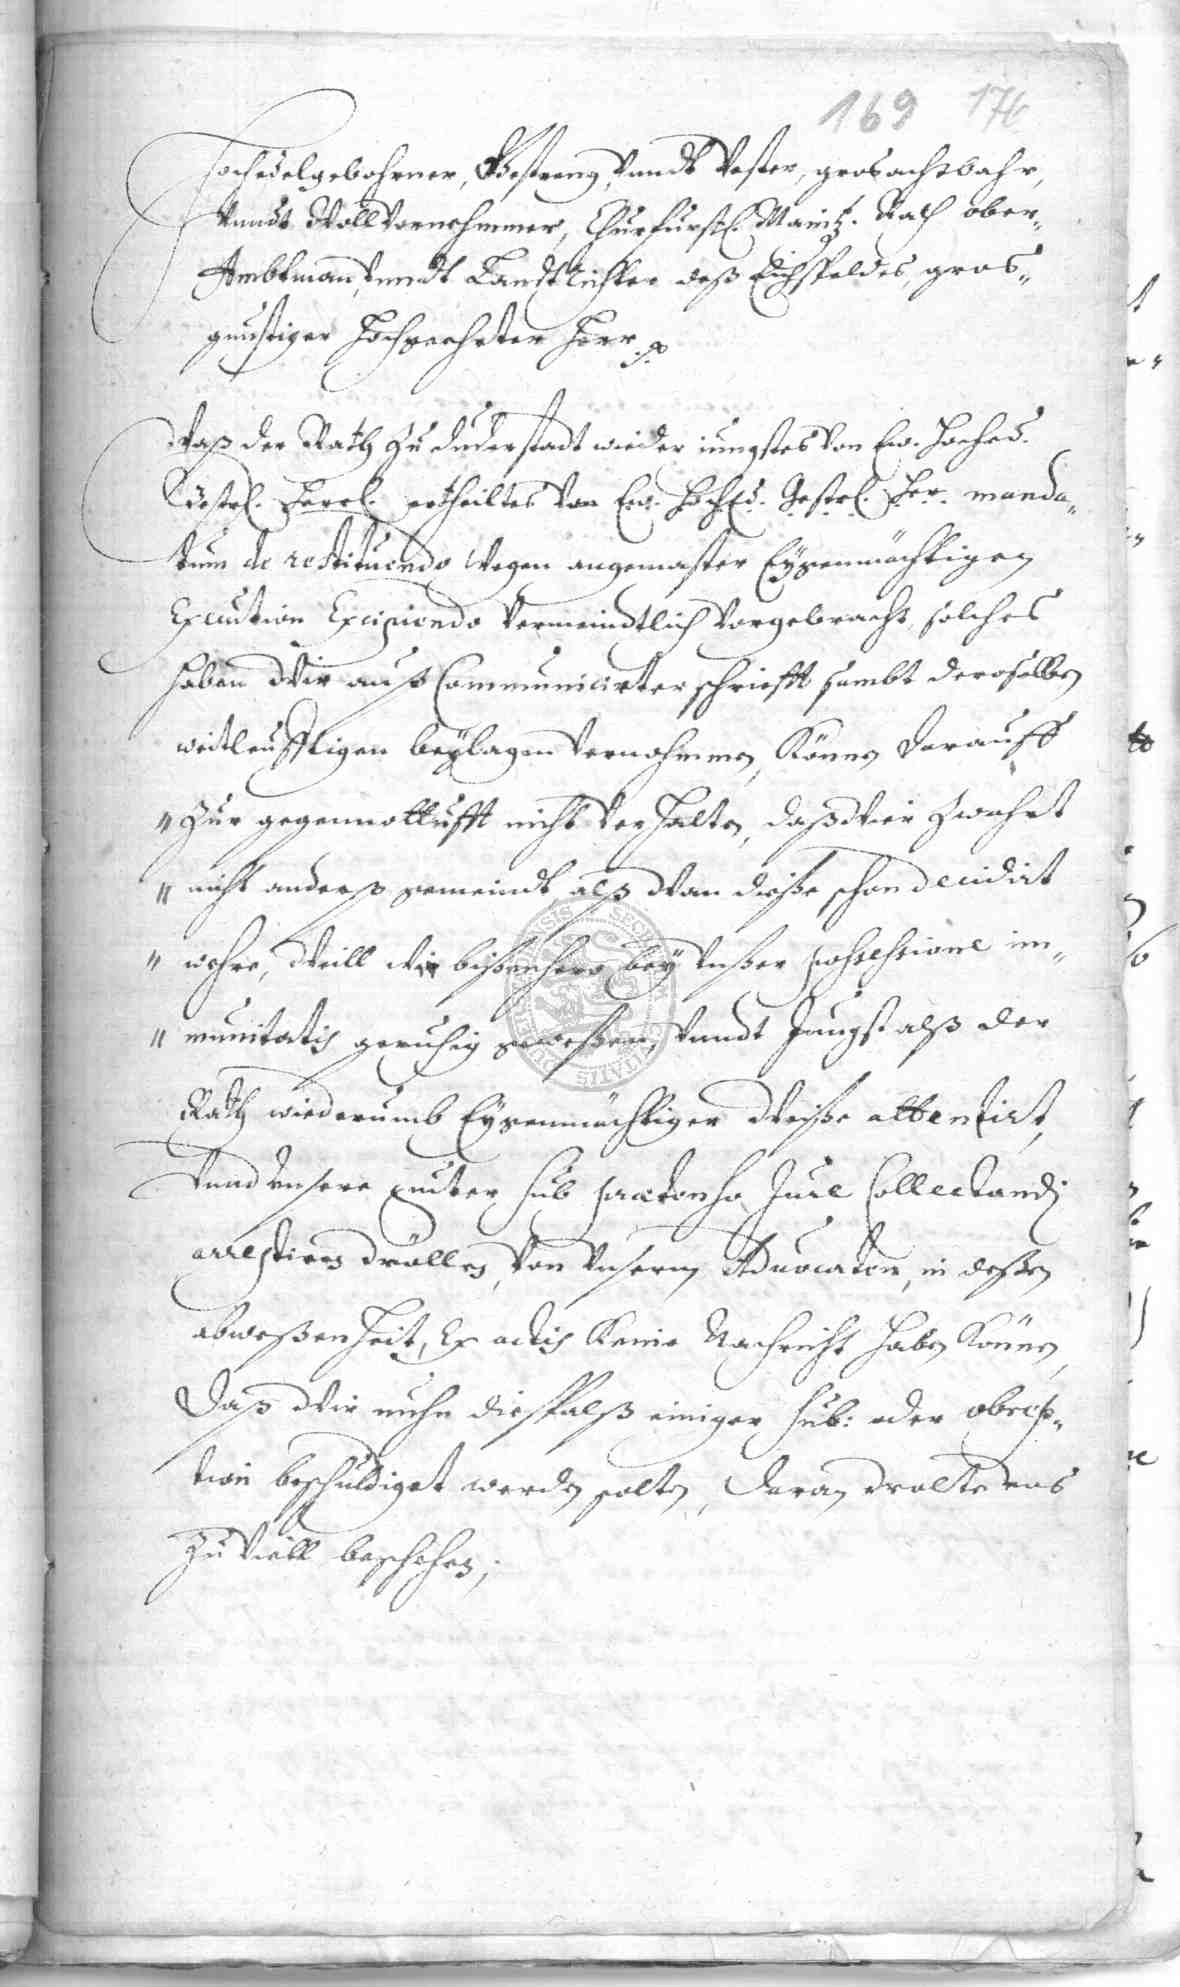 169 176
Hochedelgebohrner, Gestreng, vundt Vester, grosachtbahr,
vundt Wollvornehmmer, Churfürstl. Maintz. Rath ober-
Ambtman, vundt Landtrichter deß Eichsfeldes, gros-
günstiger Hochgeehrter Herr.
Waß der Rath Zu duderstadt wieder iüngstes von Ew. Hoched.
Gestrl. Herrl. ertheiltes von Ew. HochEd. Gestrl. Her. manda-
tum de restituendo Wegen angemaster Eygenmächtigen
Execution Excipiendo vermeindtlich vorgebracht, solches
haben Wir auß Communicirter schriefft sambt deroselben
weitleufftigen beylagen vernohmmen, Können darauff
" Zur gegennotturfft nicht verhalten, daß Wir Zwahrt
" nicht anderß gemeindt, alß Wan dieße schon decidirt
" wehre, Weill Wir bißanhero bey unßer possessione im-
" munitatis geruhig geweßen, vundt Jüngst alß der
Rath wiederumb Eygenmächtiger Weiße attentirt,
vund unsere guter sub praetenso Jure Collectandi
arrestiren wöllen, von unserm Advocaten, in deßen
abweßenheit, Ex actis Keine Nachricht haben Können,
Daß Wir nuhn dießfalß einiger sub: oder obrep-
tion beschuldiget werden solten, daran Wolte uns
Zu viell beschehen,